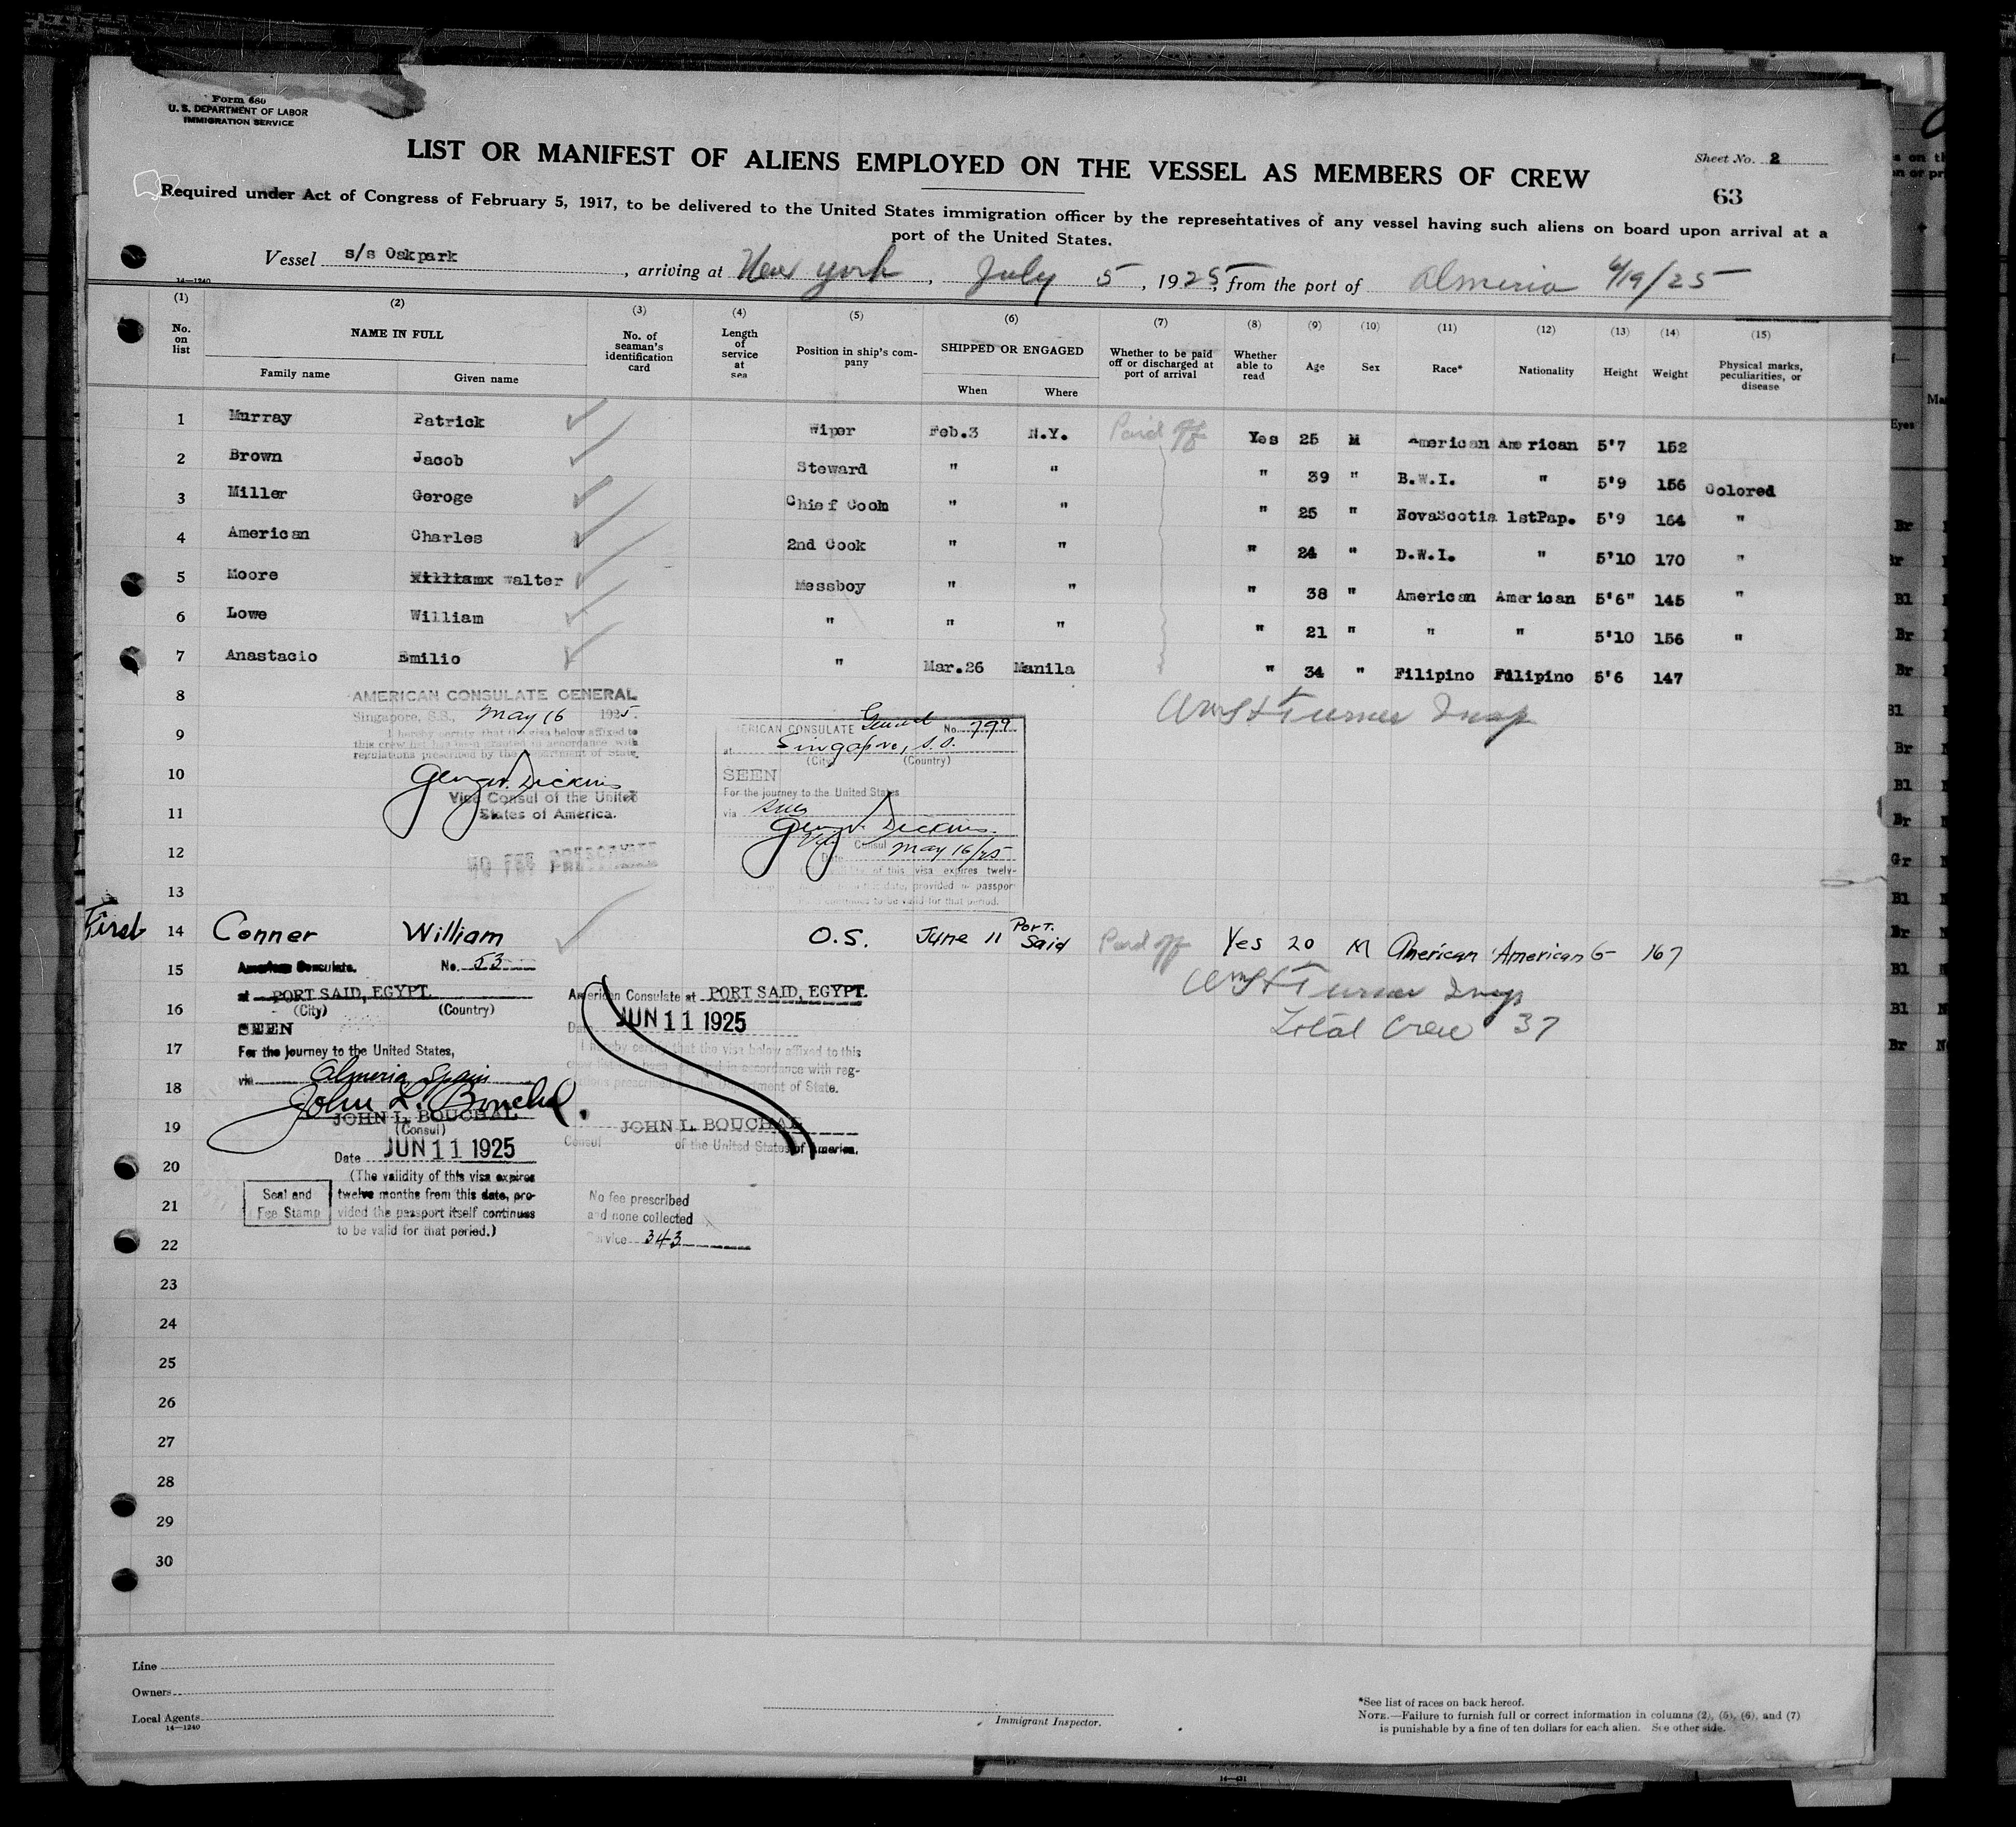 Form 680
U. S. DEPARTMENT OF LABOR
IMMIGRATION SERVICE
LIST OR MANIFEST OF ALIENS EMPLOYED ON THE VESSEL AS MEMBERS OF CREW
Sheet No. 2
63
Required under Act of Congress of February 5, 1917, to be delivered to the United States immigration officer by the representatives of any vessel having such aliens on board upon arrival at a
port of the United States.
Vessel s/s Oakpark, arriving at New York, July 5, 1925, from the port of Almeria 6/19/25
14—1240
(1) (2) (3) (4) (5) (6) (7) (8) (9) (10) (11) (12) (13) (14) (15)
No. on list
NAME IN FULL
Family name Given name
No. of seaman's identification card
Length of service at sea
Position in ship's company
SHIPPED OR ENGAGED
When Where
Whether to be paid off or discharged at port of arrival
Whether able to read
Age Sex Race* Nationality Height Weight
Physical marks, peculiarities, or disease
1 Murray Patrick Wiper Feb.3 N.Y. Paid off Yes 25 M American American 5'7 152
2 Brown Jacob Steward " " " 39 " B.W.I. " 5'9 156 Colored
3 Miller Geroge Chief Cook " " " 25 " NovaScotia 1stPap. 5'9 164 "
4 American Charles 2nd Cook " " " 24 " D.W.I. " 5'10 170 "
5 Moore Williamx Walter Messboy " " " 38 " American American 5'6" 145 "
6 Lowe William " " " " 21 " " " 5'10 156 "
7 Anastacio Emilio " Mar.26 Manila " 34 " Filipino Filipino 5'6 147
8
AMERICAN CONSULATE GENERAL
Singapore, S.S., May 16 1925.
I hereby certify that the visa below affixed to
this crew list has been granted in accordance with
regulations prescribed by the Department of State.
Vice Consul of the United
States of America.
NO FEE PRESCRIBED
AMERICAN CONSULATE General No. 799
at Singapore, S.S.
(City) (Country)
SEEN
For the journey to the United States
via Suez
Consul
Date May 16/25
of this visa expires twelve
date, provided passpor
continues to be valid for that period.
Turner Insp
9
10
11
12
13
First 14 Conner William O.S. June 11 Port Said Paid off Yes 20 M American American 6- 167
Turner Insp
Total Crew 37
15
American Consulate. No. 53
at PORT SAID, EGYPT.
(City) (Country)
16
SEEN
For the journey to the United States,
17
via Almeria Spain
18
John L. Bouchal.
JOHN L. BOUCHAL
(Consul)
19
Date JUN 11 1925
20
(The validity of this visa expires
twelve months from this date, pro-
vided the passport itself continues
to be valid for that period.)
Seal and
Fee Stamp
21
22
American Consulate at PORT SAID, EGYPT.
Date JUN 11 1925
I hereby certify that the visa below affixed to this
crew list has been granted in accordance with reg-
ulations prescribed by the Department of State.
JOHN L. BOUCHAL
Consul of the United States of America.
No fee prescribed
and none collected
Service 343
23
24
25
26
27
28
29
30
Line
Owners
Local Agents
14—1240
Immigrant Inspector.
*See list of races on back hereof.
NOTE.—Failure to furnish full or correct information in columns (2), (5), (6), and (7)
is punishable by a fine of ten dollars for each alien. See other side.
Eyes
Br
Br
Bl
Br
Br
Bl
Br
Bl
Br
Gr
Bl
Br
Bl
Bl
Br